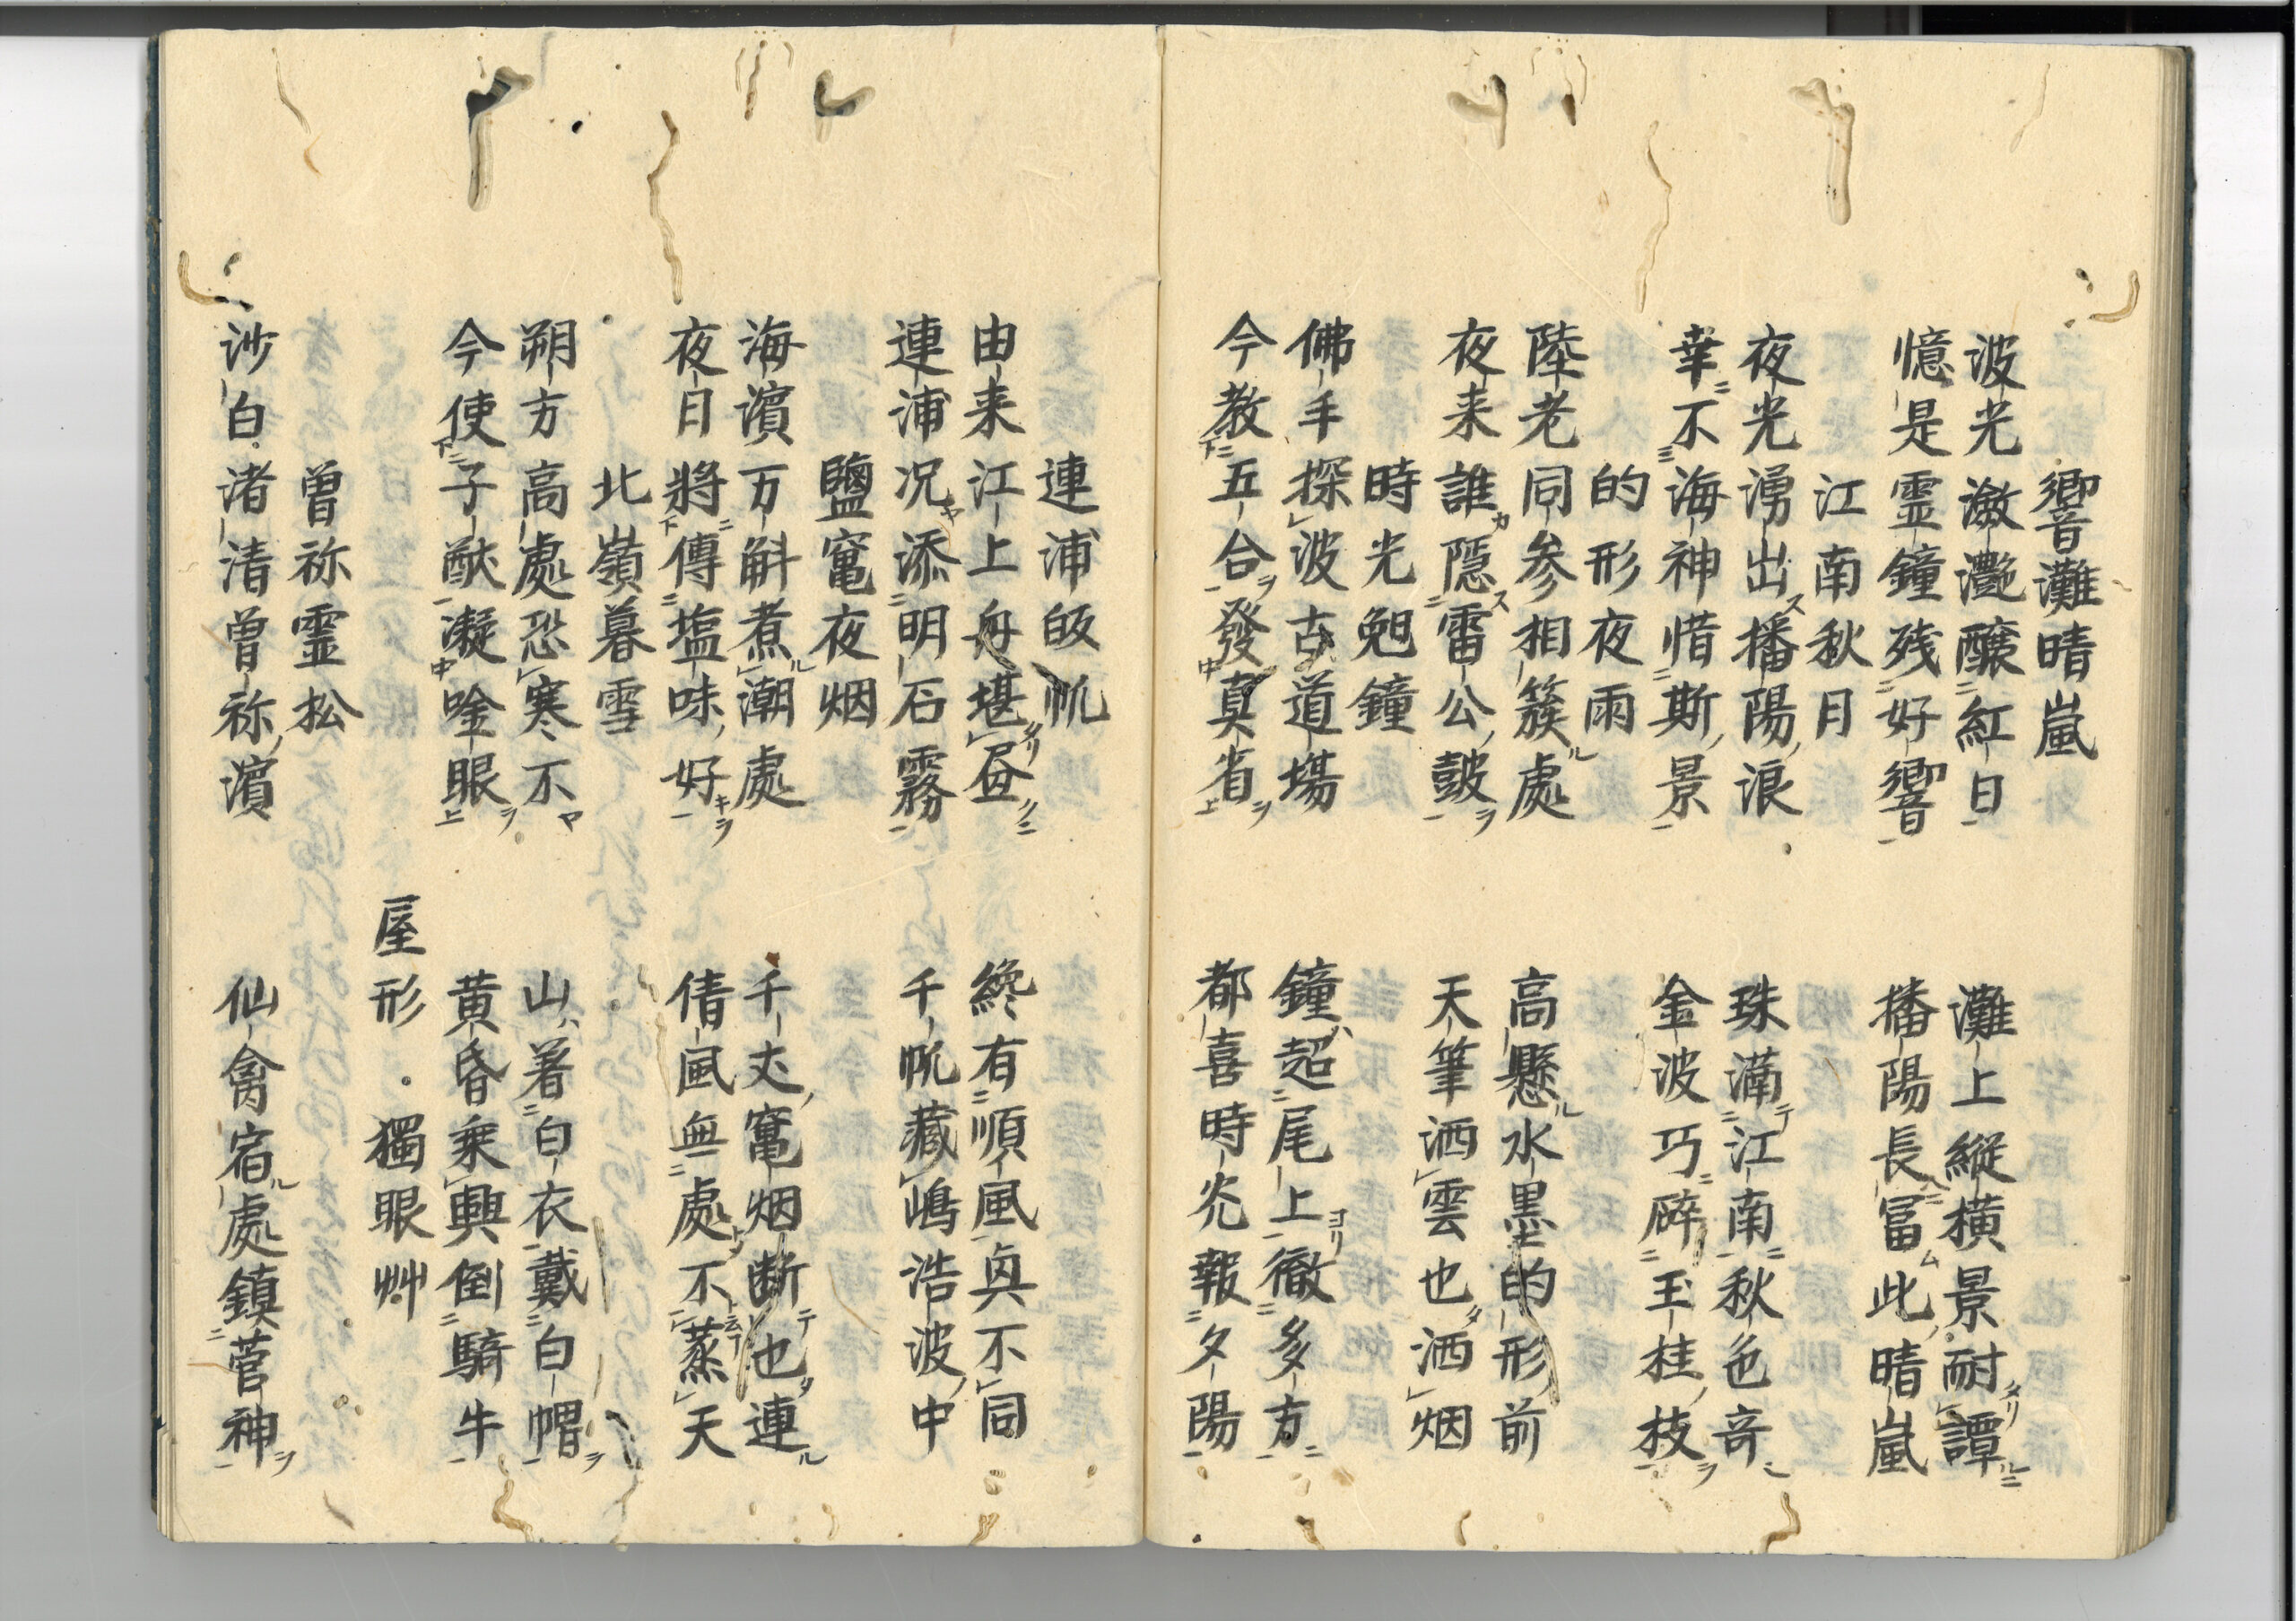 響灘晴嵐
波光瀲灔醸紅日　灘上縦横景耐譚
憶是霊鐘残好響　播陽長冨此晴嵐
江南秋月
夜光湧出播陽浪　珠満江南秋色奇
幸不海神惜斯景　金波巧碎玉桂枝
的形夜雨
陸老同参相簇處　高懸水墨的形前
夜来誰隠雷公皷　天筆洒雲也洒烟
時光晩鐘
佛手探波古道場　鐘超尾上徹多方
今教五合發真省　都喜時光報夕陽
連浦皈帆
由来江上舟堪畫　纔有順風真不同
連浦况添明石霧　千帆藏嶋浩波中
鹽竃夜烟
海濱万斛煮潮處　千丈竃烟断也連
夜日將傳塩味好　倩風無處不蒸天
北嶺暮雪
朔方高處恐寒不　山著白衣戴白帽
今使子猷凝吟眼　黄昏乘興倒騎牛
屋形　獨眼艸
曽祢霊松
沙白渚清曽祢濱　仙禽宿處鎮菅神